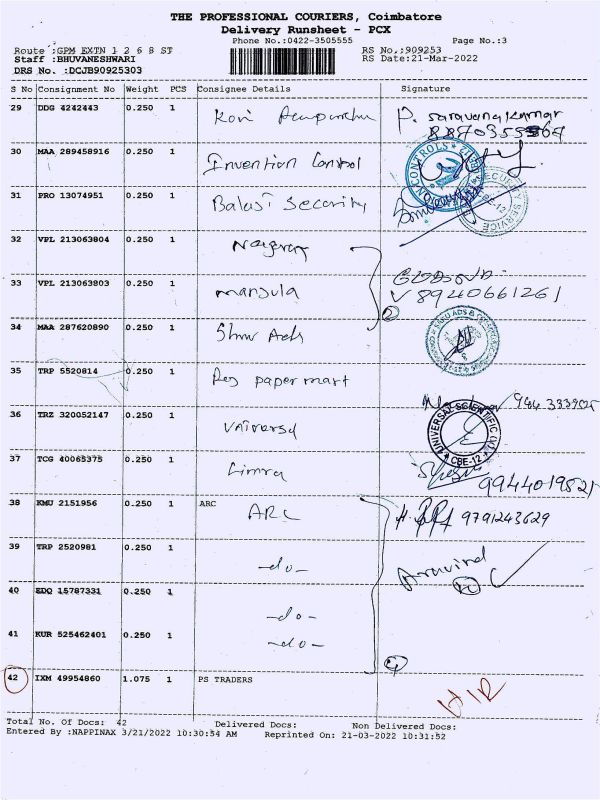 THE PROFESSIONAL COURIERS, Coimbatore
Delivery Runsheet - PCX
Phone No.:0422-3505555 Page No.:3
Route :GPM EXTN 1 2 6 8 ST RS No,:909253
Staff :BHUVANESHWARI RS Date:21-Mar-2022
DRS No. :DCJB90925303
S No Consignment No Weight PCS Consignee Details Signature
29 DDG 4242443 0.250 1
30 MAA 289458916 0.250 1 Invention Control
31 PRO 13074951 0.250 1 Balaji Security
32 VPL 213063804 0.250 1
33 VPL 213063803 0.250 1 manjula 8940661261
34 MAA 287620890 0.250 1 Shru Ads
35 TRP 5520814 0.250 1 papermart
36 TRZ 320052147 0.250 1 UNIVERSAL SCIENTIFIC CBE-12
37 TCG 40065375 0.250 1 Limra
38 KMU 2151956 0.250 1 ARC
ARC 9791243629
39 TRP 2520981 0.250 1 -do- Aravind
40 EDQ 15787331 0.250 1 -do-
41 KUR 525462401 0.250 1 -do-
42 IXM 49954860 1.075 1 PS TRADERS
Total No. Of Docs: 42 Delivered Docs: Non Delivered Docs:
Entered By :NAPPINAX 3/21/2022 10:30:54 AM Reprinted On: 21-03-2022 10:31:52